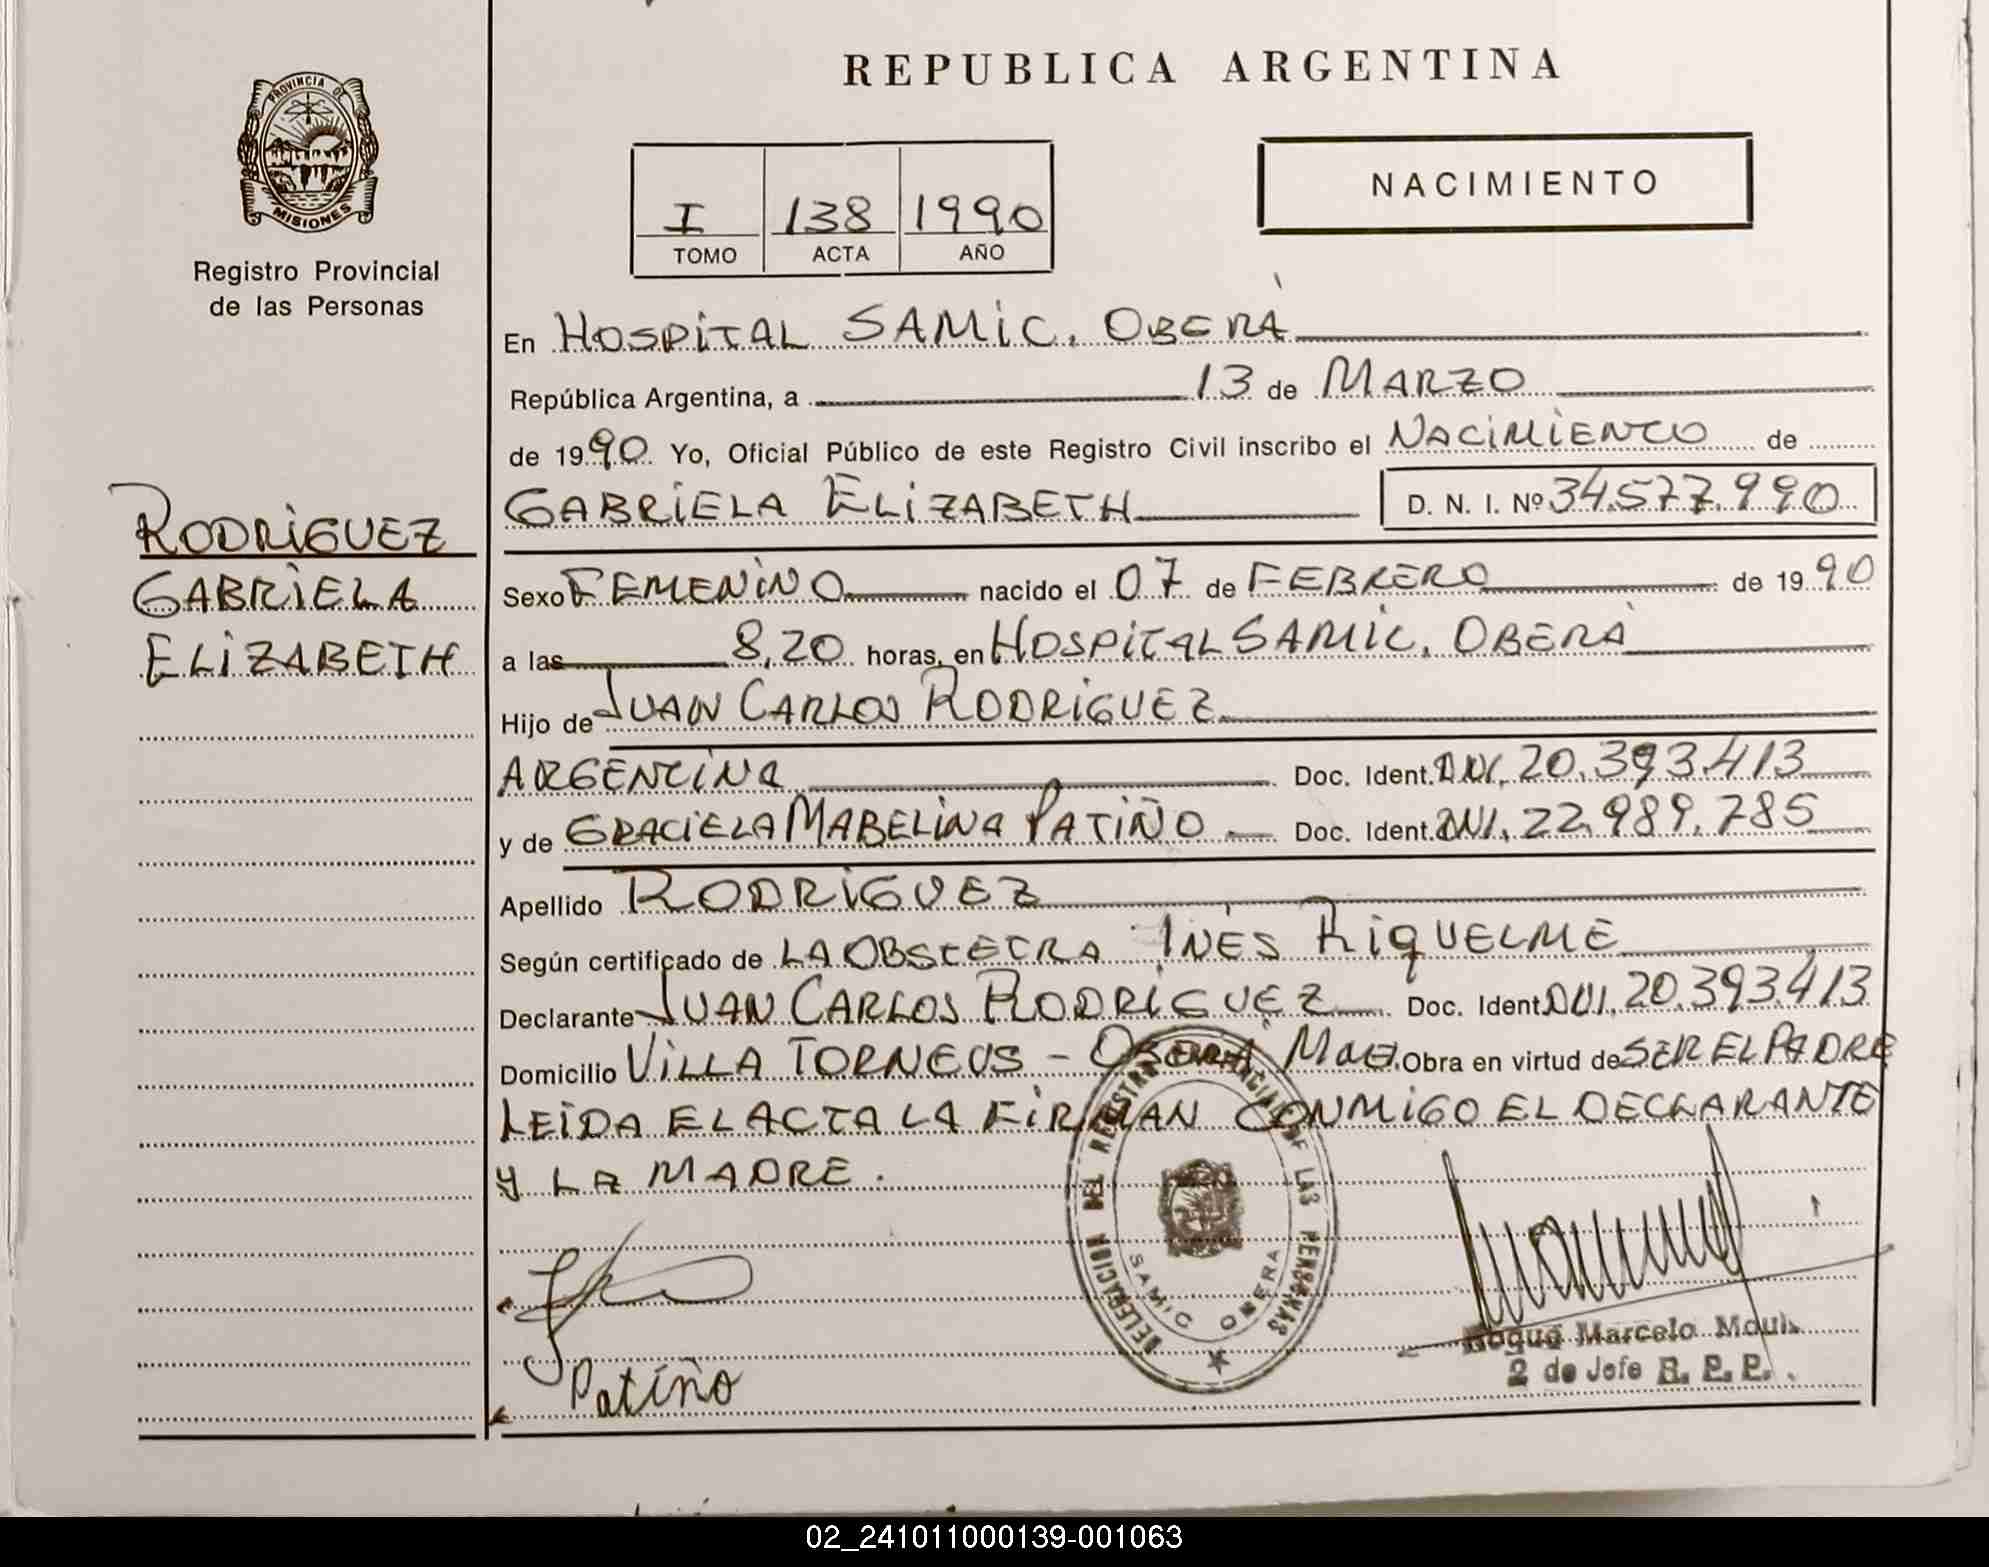 PROVINCIA DE
MISIONES
Registro Provincial
de las Personas
RODRIGUEZ
GABRIELA
ELIZABETH
REPUBLICA ARGENTINA
I 138 1990
TOMO ACTA AÑO
NACIMIENTO
En HOSPITAL SAMIC. OBERÁ
República Argentina, a 13 de MARZO
de 1990 Yo, Oficial Público de este Registro Civil inscribo el NACIMIENTO de
GABRIELA ELIZABETH D. N. I. Nº 34.577.990
Sexo FEMENINO nacido el 07 de FEBRERO de 1990
a las 8,20 horas, en HOSPITAL SAMIC. OBERÁ
Hijo de JUAN CARLOS RODRIGUEZ
ARGENTINA Doc. Ident. DNI. 20.393.413
y de GRACIELA MABELINA PATIÑO Doc. Ident. DNI. 22.989.785
Apellido RODRIGUEZ
Según certificado de LA OBSTETRA INÉS RIQUELME
Declarante JUAN CARLOS RODRIGUEZ Doc. Ident DNI. 20.393.413
Domicilio VILLA TORNEUS - OBERÁ Obra en virtud de SER EL PADRE
LEIDA EL ACTA LA FIRMAN CONMIGO EL DECLARANTE
Y LA MADRE.
DELEGACION DEL REGISTRO PROVINCIAL DE LAS PERSONAS
SAMIC OBERA
Patiño
Roque Marcelo
2 de Jefe R. P. P.
02_241011000139-001063